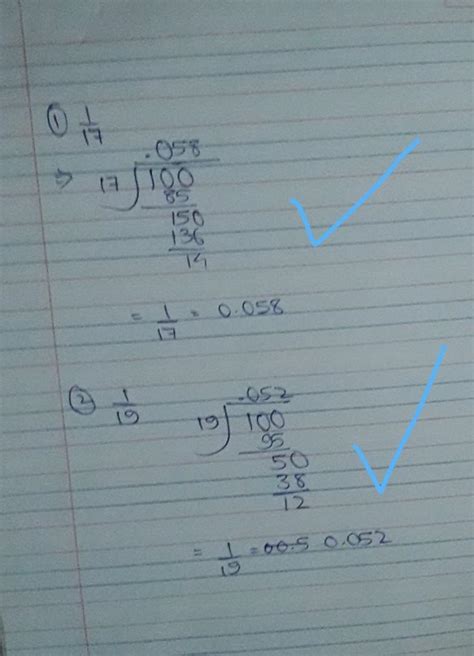 ① 1/17
.058
⇒ 17 100
85
150
136
14
= 1/17 = 0.058
② 1/19
.052
19 100
95
50
38
12
= 1/19 = 00.5 0.052